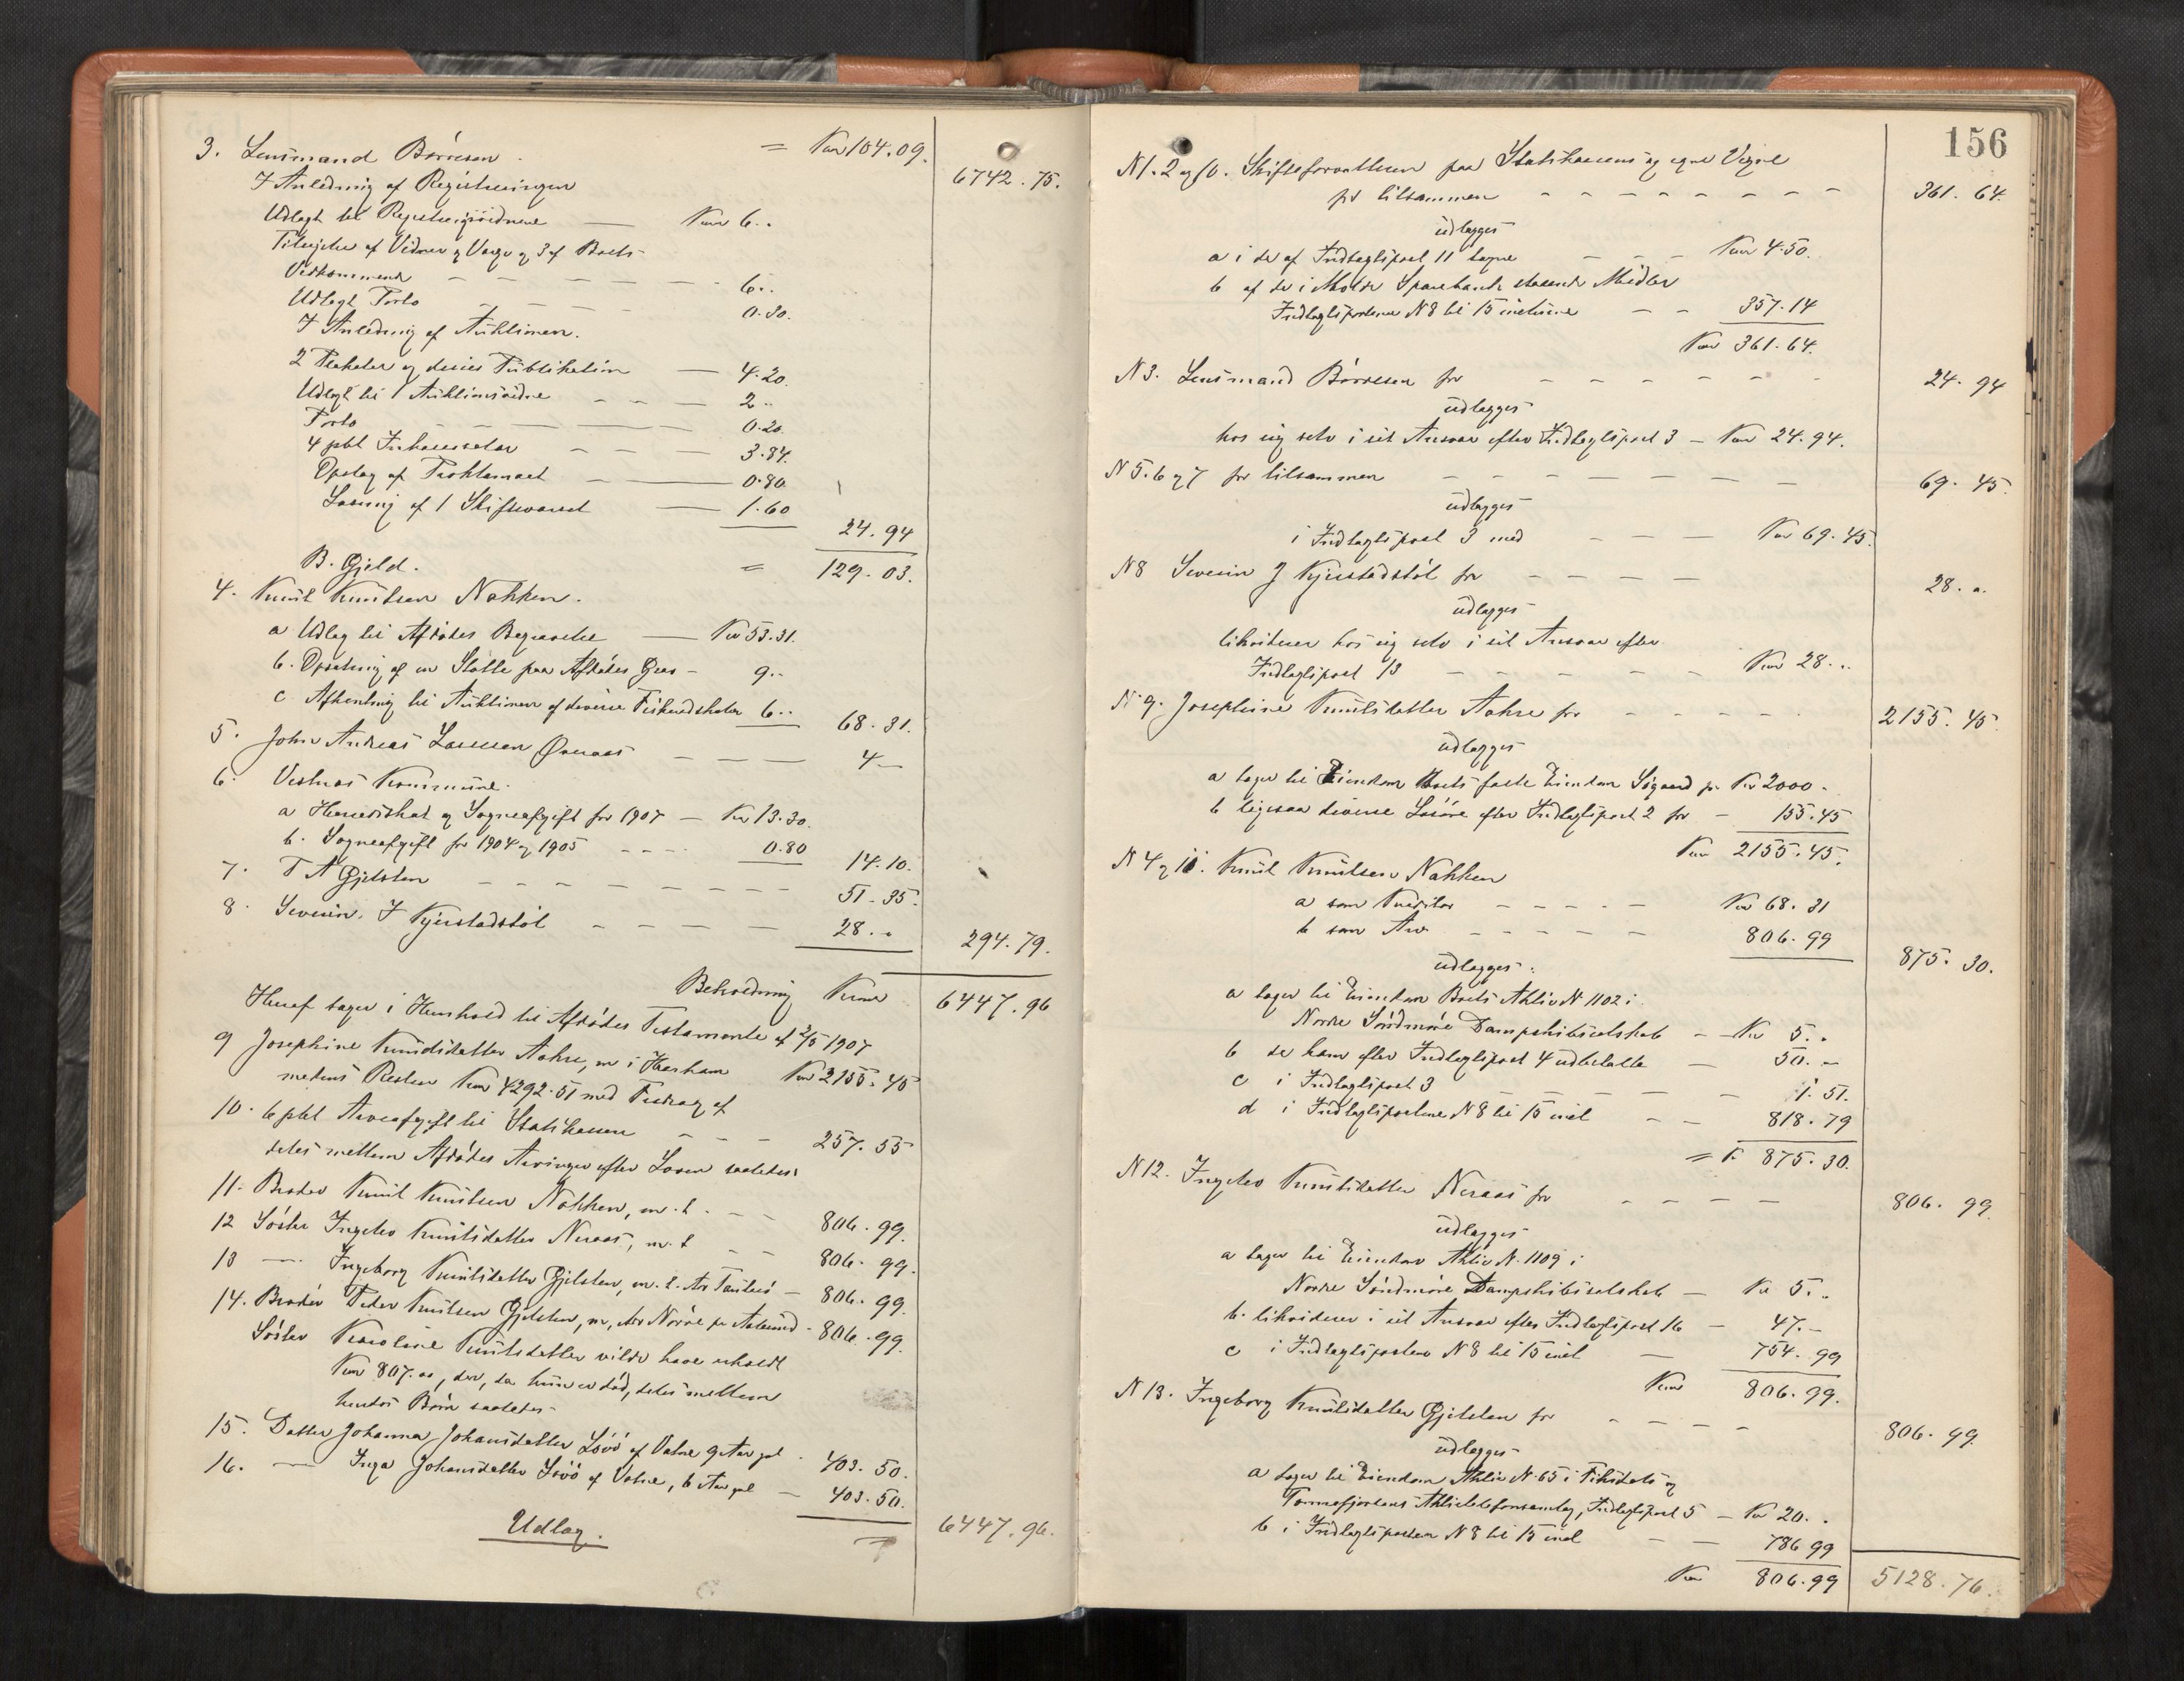 3. Lensmand Börresen = Kr 104.09.
6742.75.
I Anledning af Registreringen
Udlagt til Registreringsvidnerne — Kr 6..
Tilsigelse af Vidner og Værge og 3 af Boets
Vedkommende — 6..
Udlagt Porto — 0.30.
I Anledning af Auktionen.
2 Plakater og deres Publikation — 4.20.
Udlagt til 1 Auktionsvidne — 2..
Porto — 0.20.
4 pCt Inkassosalær — 3.84.
Opslag af Proklamaet — 0.80.
Læsning af 1 Skiftevarsel — 1.60
24.94
= 129.03.
B. Gjeld.
4. Knut Knutsen Nakken.
a Udlæg til Afdødes Begravelse — Kr 53.31.
b. Opsætning af en Støtte paa Afdødes Grav — 9..
c Afhentning til Auktionen af diverse Fiskeredskaber 6..
68.31.
5. John Andreas Larssen Øveraas — 4 —
6. Vestnes Kommune.
a Herredskat og Sogneafgift for 1907 — Kr 13.30.
b. Sogneafgift for 1904 og 1905 — 0.80
14.10.
7. T A Gjelsten — 51.35.
8. Severin J Kjerstadstøl — 28..
294.79.
Beholdning Kroner 6447.96
Heraf tager i Henhold til Afdødes Testamente af 2/5 1907
9 Josephine Knudsdatter Aakre, m i Haarham Kr 2155.45
medens Resten Kr 4292.51 med Fradrag af
10. 6 pCt Arveafgift til Statskassen — 257.55
deles mellem Afdødes Arvinger efter Loven saaledes:
11. Broder Knut Knutsen Nakken, m.t. — 806.99.
12 Søster Ingeleo Knutsdatter Neraas, m.t — 806.99.
13 — Ingeborg Knutsdatter Gjelsten, m.t. — 806.99.
14. Broder Peder Knutsen Gjelsten, m, Adr Nørve pr Aalesund. 806.99.
Søster Karoline Knutsdatter vilde have erholdt
Kr 807.00, der, da hun er død, deles mellem
hendes Børn saaledes
15. Datter Johanna Johansdatter Løvö af Vatne 9 Aar gl. 403.50.
16. — Inga Johansdatter Løvö af Vatne, 6 Aar gl — 403.50.
6447.96.
Udlæg.
156
N 1. 2 og 10. Skifteforvalteren paa Statskassens og egne Vegne
for tilsammen — 361.64.
udlægges
a i de af Indtægtspost 11 tagne — Kr 4.50.
b af de i Molde Sparebank staaende Midler
Indtægtsposterne N 8 til 15 inclusive — 357.14
Kr 361.64.
N 3. Lensmand Börresen for — 24.94
udlægges
hos sig selv i sit Ansvar efter Indtægtspost 3 — Kr 24.94.
N 5. 6 og 7 for tilsammen — 69.45.
udlægges
i Indtægtspost 3 med — Kr 69.45.
N 8 Severin J Kjerstadstøl for — 28..
udlægges
likviderer hos sig selv i sit Ansvar efter
Indtægtspost 13 — Kr 28..
N 9. Josephine Knutsdatter Aakre for — 2155.45.
udlægges
a tager til Eiendom Boets faste Eiendom Sigaard for Kr 2000.
b ligesaa diverse Løsøre efter Indtægtspost 2 for — 155.45
Kr 2155.45.
N 4 og 11. Knut Knutsen Nakken
a som Kreditor — Kr 68.31
b som Arv — 806.99
875.30.
udlægges:
a tager til Eiendom Boets Aktie N 1102 i
Nordre Söndmöre Dampskibsselskab — Kr 5..
b de ham efter Indtægtspost 4 udbetalte — 50.—
c i Indtægtspost 3 — 1.51.
d i Indtægtsposterne N 8 til 15 incl — 818.79
= K 875.30.
N 12. Ingeleo Knutsdatter Neraas for — 806.99.
udlægges
a tager til Eiendom Aktie N. 1109 i
Nordre Söndmöre Dampskibsselskab — Kr 5..
b. likviderer i sit Ansvar efter Indtægtspost 16 — 47.—
c i Indtægtsposterne N 8 til 15 incl — 754.99
Kr 806.99.
N 13. Ingeborg Knutsdatter Gjelsten for — 806.99.
udlægges
a tager til Eiendom Aktie N. 65 i Fiksdals og
Tomrefjordens Aktietelefonsamlag, Indtægtspost 5 — Kr 20..
b i Indtægtsposterne N 8 til 15 incl — 786 99
Kr 806.99
5128.76.